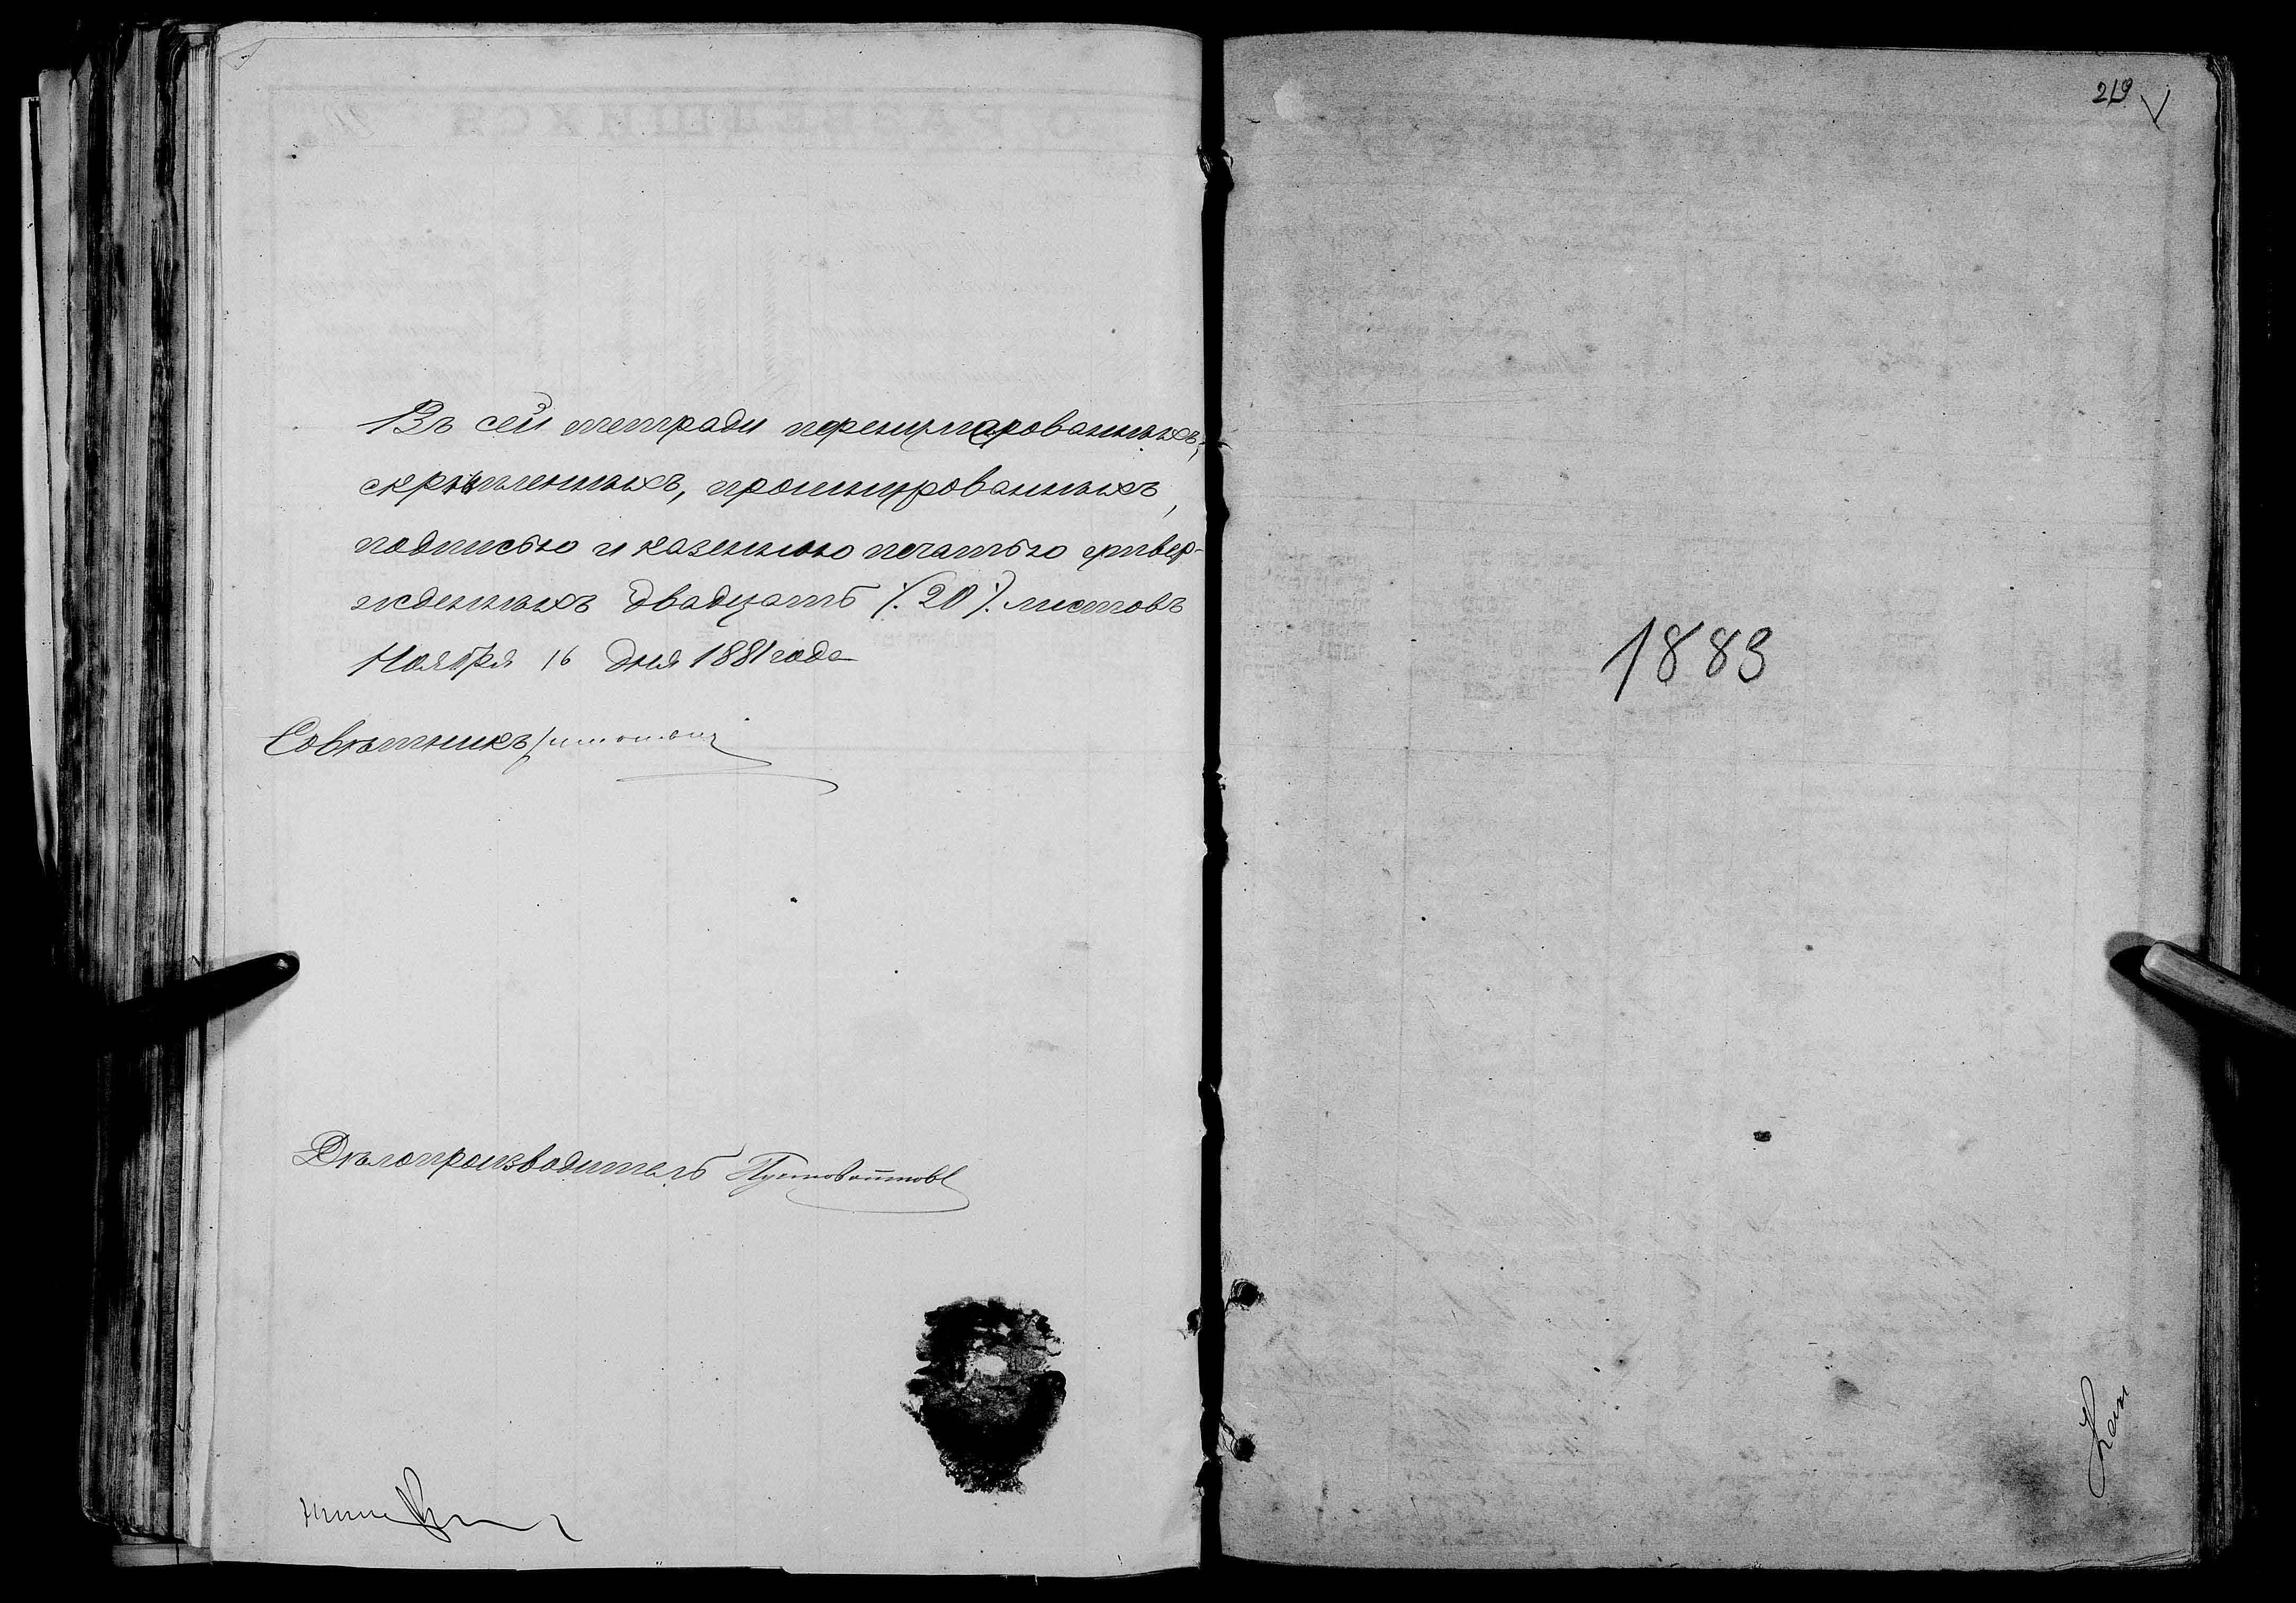 Въ сей тетради перенумерованныхъ,
скрѣпленныхъ, прошнурованныхъ,
подписью и казенною печатью утвер-
жденныхъ двадцать /.20/. листовъ
Ноября 16 дня 1881 года
Совѣтникъ
Дѣлопроизводитель
219
1883